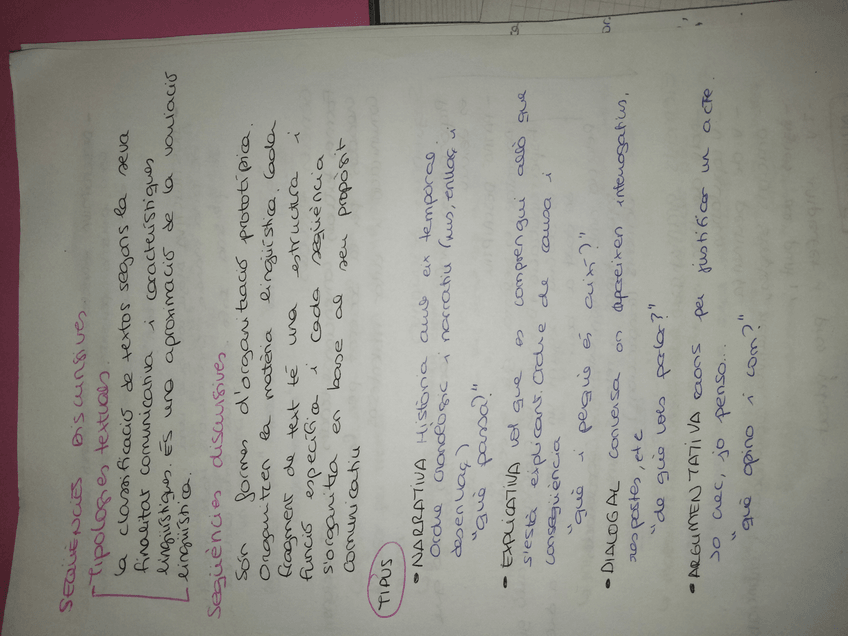 SEQÜÈNCIES DISCURSIVES
Tipologies textuals
la classificació de textos segons la seva
finalitat comunicativa i característiques
lingüístiques. És una aproximació de la variació
lingüística.
Seqüències discursives
són formes d'organització prototípica.
Organitzen la matèria lingüística. Cada
fragment de text té una estructura i
funció específica i cada seqüència
s'organitza en base al seu propòsit
comunicatiu
TIPUS
• NARRATIVA Història amb eix temporal
Ordre cronològic i narratiu (nus, enllaç i
desenllaç)
"què passa?"
• EXPLICATIVA vol que es comprengui allò que
s'està explicant. Ordre de causa i
conseqüència
"què i perquè és així?"
• DIALOGAL conversa on apareixen interrogatius,
respostes, etc
"de què vols parlar?"
• ARGUMENTATIVA raons per justificar un acte.
Jo crec, jo penso...
"què opino i com?"